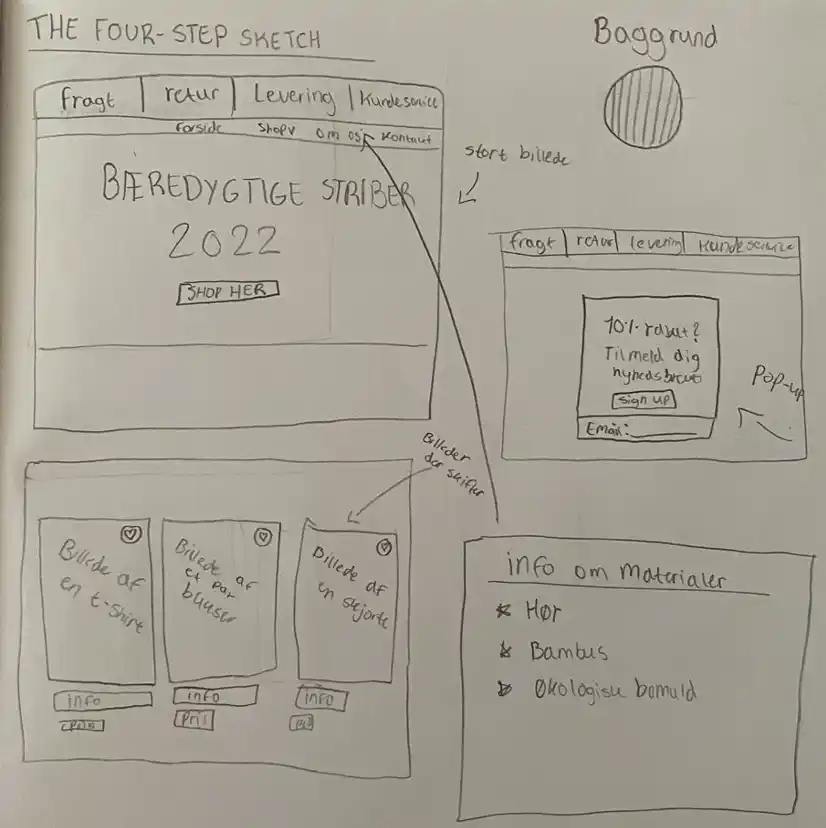 THE FOUR-STEP SKETCH
Baggrund
fragt retur Levering Kundeservice
forside shop om os kontakt
start billede
BÆREDYGTIGE STRIBER
2022
SHOP HER
fragt retur levering Kundeservice
10% rabat?
Tilmeld dig
nyhedsbrev
sign up
Email:
Pop-up
Billeder
der skifter
Billede af
en t-shirt
Billede af
et par
bukser
Billede af
en skjorte
info info info
pris pris
info om materialer
Hør
Bambus
Økologisk bomuld